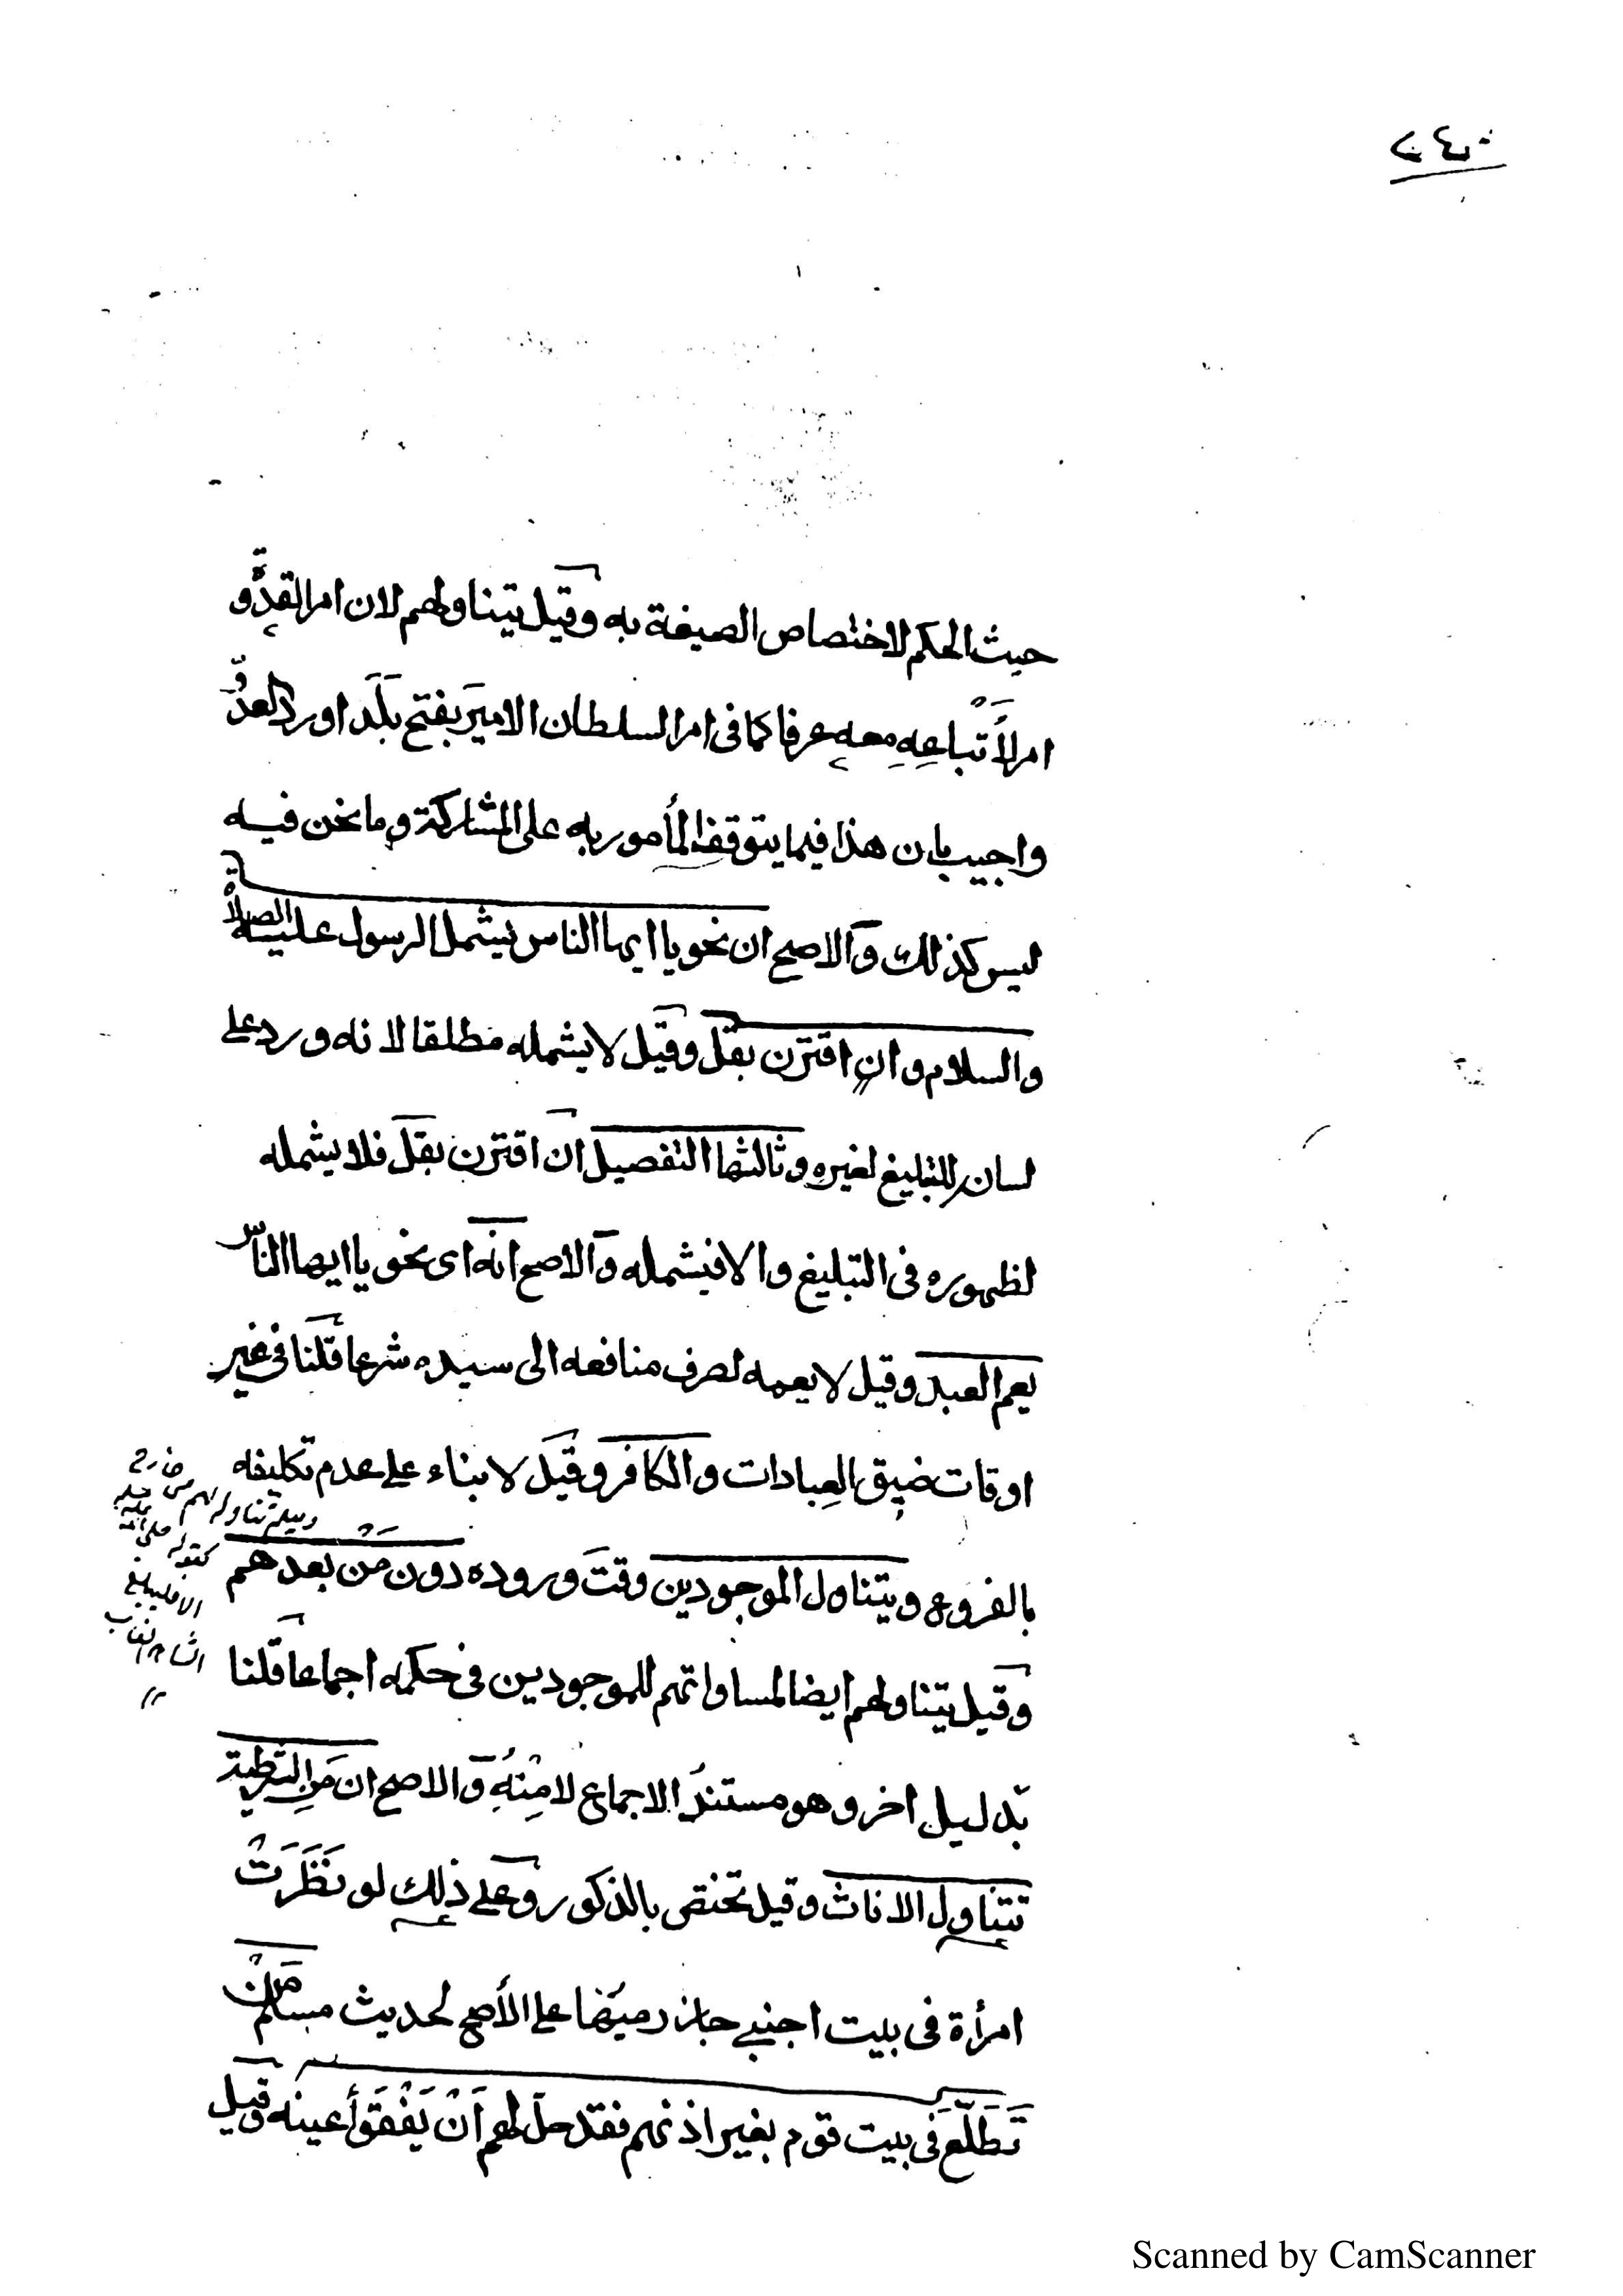 حيث الحكم لاختصاص الصيغة به وقيل يتناولهم لان امر القدوة
امر لأتباعه معه عرفا كما فى امر السلطان الامير بفتح بلد او رد العدو
واجيب بان هذا فيما يتوقف المأمور به على المشاركة وما نحن فيه
ليس كذلك والاصح ان نحو يا ايها الناس يشمل الرسول عليه الصلاة
والسلام وان اقترن بقل وقيل لا يشمله مطلقا لانه ورد على
لسان للتبليغ لغيره وثالثها التفصيل ان اقترن بقل فلا يشمله
لظهوره فى التبليغ والا فيشمله والاصح انه اى نحو يا ايها الناس
يعم العبد وقيل لا يعمه لصرف منافعه الى سيده شرعا قلنا فى غير
اوقات ضيق العبادات والكافر وقيل لا بناء على عدم تكليفه
بالفروع ويتناول الموجودين وقت وروده دون من بعدهم
وقيل يتناولهم ايضا لمساواتهم للموجودين فى حكمه اجماعا قلنا
بدليل اخر وهو مستند الاجماع لا منه والاصح ان من الشرطية
تتناول الاناث وقيل تختص بالذكور وعلى ذلك لو نظرت
امرأة فى بيت اجنبي جاز رميها على الأصح لحديث مسلم من
تطلع فى بيت قوم بغير اذنهم فقد حل لهم أن يفقؤا عينه وقيل
تناوله لهم من خارج
الا فليبلغ
الشاهد الغائب
Scanned by CamScanner